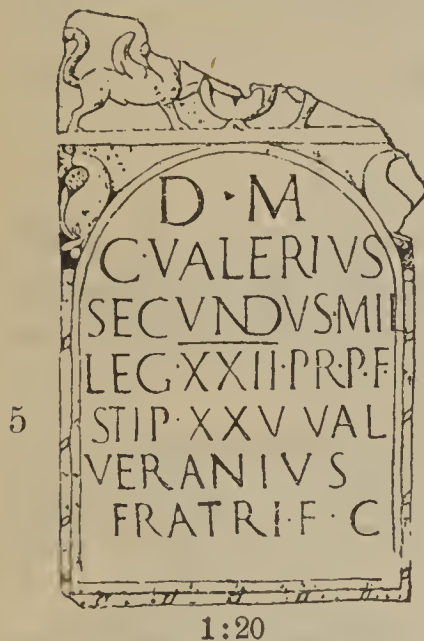 D · M
C · VALERIVS
SECVNDVS · MIL
LEG · XXII · PR · P · F
5 STIP · XXV VAL
VERANIVS
FRATRI · F · C
1:20